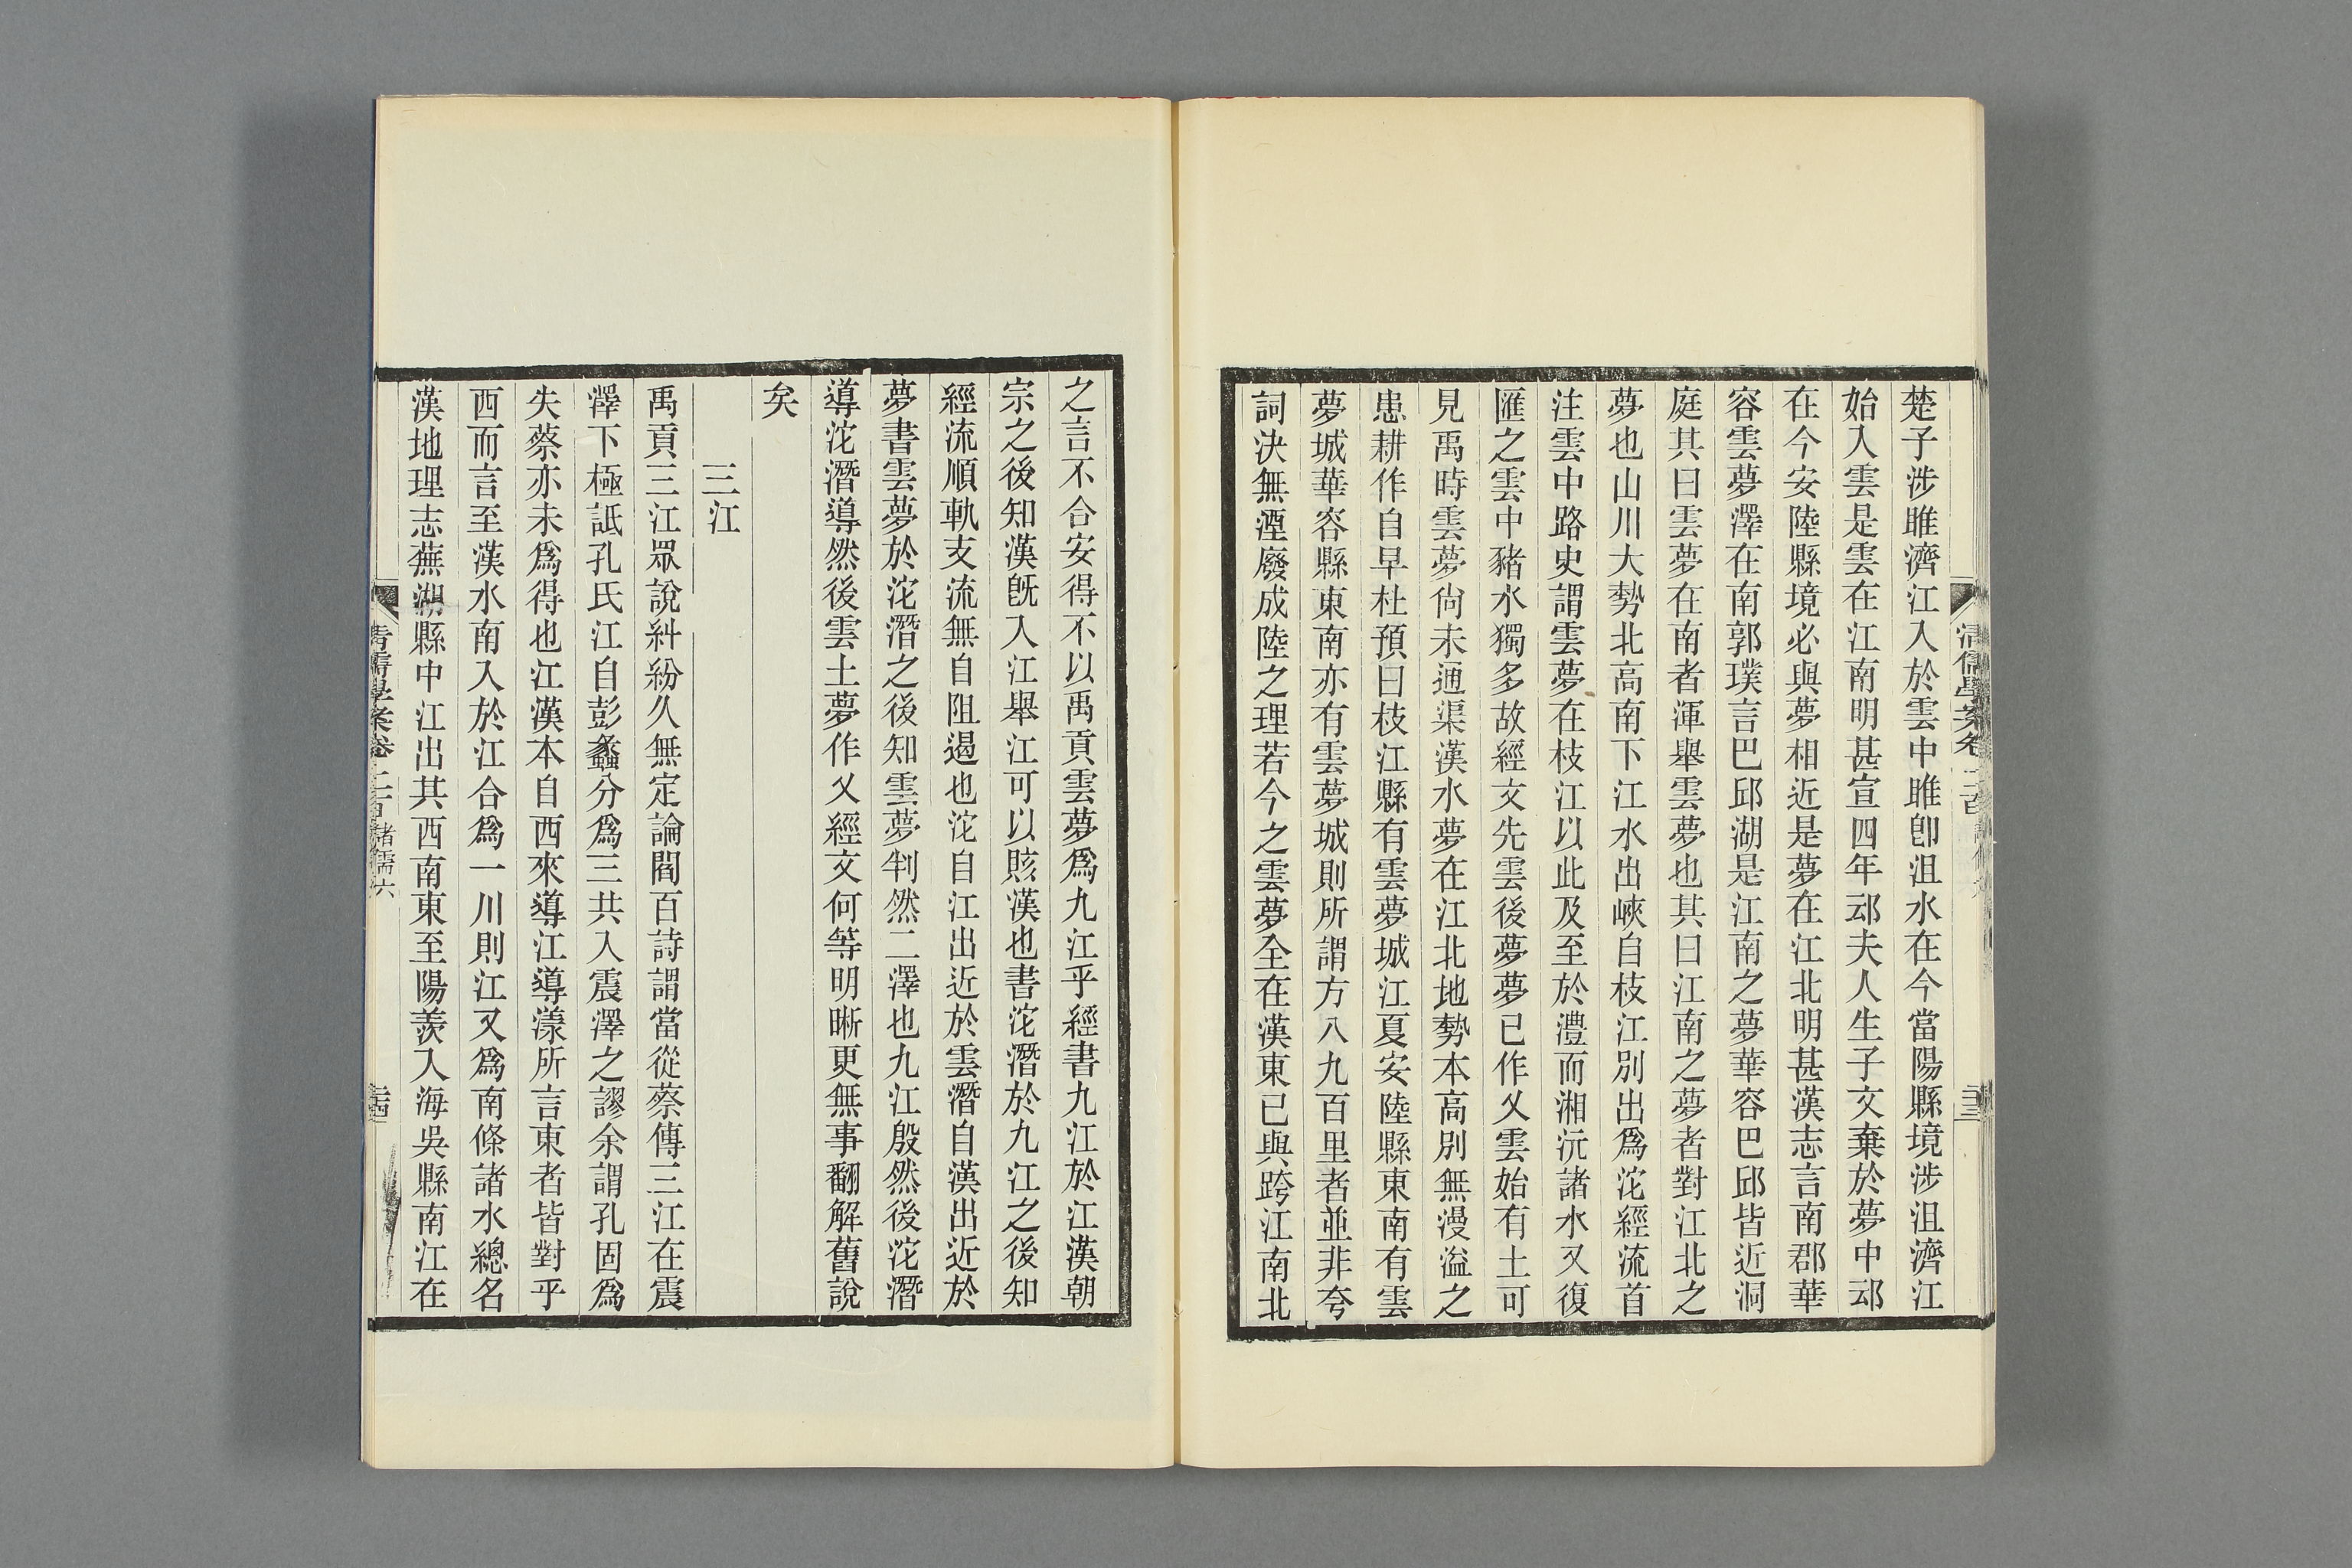 楚子涉睢濟江入於雲中睢卽沮水在今當陽縣境涉沮濟江
始入雲是雲在江南明甚宣四年䢵夫人生子文棄於夢中䢵
在今安陸縣境必與夢相近是夢在江北明甚漢志言南郡華
容雲夢澤在南郭璞言巴邱湖是江南之夢華容巴邱皆近洞
庭其曰雲夢在南者渾舉雲夢也其曰江南之夢者對江北之
夢也山川大勢北高南下江水出峽自枝江別出爲沱經流首
注雲中路史謂雲夢在枝江以此及至於澧而湘沅諸水又復
匯之雲中豬水獨多故經文先雲後夢夢已作乂雲始有土可
見禹時雲夢尙未通渠漢水夢在江北地勢本高別無漫溢之
患耕作自早杜預曰枝江縣有雲夢城江夏安陸縣東南有雲
夢城華容縣東南亦有雲夢城則所謂方八九百里者並非夸
詞決無湮廢成陸之理若今之雲夢全在漢東已與跨江南北
清儒學案卷二百
三十三
之言不合安得不以禹貢雲夢爲九江乎經書九江於江漢朝
宗之後知漢旣入江舉江可以賅漢也書沱潛於九江之後知
經流順軌支流無自阻遏也沱自江出近於雲潛自漢出近於
夢書雲夢於沱潛之後知雲夢判然二澤也九江殷然後沱潛
導沱潛導然後雲土夢作乂經文何等明晰更無事翻解舊說
矣
三江
禹貢三江眾說糾紛久無定論閻百詩謂當從蔡傳三江在震
澤下極詆孔氏江自彭蠡分爲三共入震澤之謬余謂孔固爲
失蔡亦未爲得也江漢本自西來導江導漾所言東者皆對乎
西而言至漢水南入於江合爲一川則江又爲南條諸水總名
漢地理志蕪湖縣中江出其西南東至陽羨入海吳縣南江在
清儒學案卷二百 諸儒六
三十四